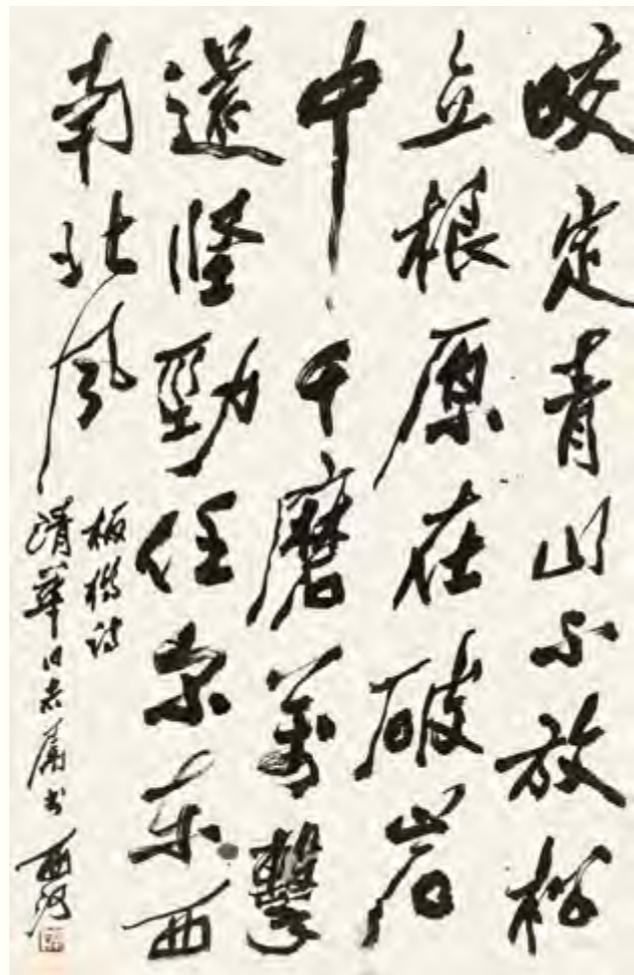 咬定青山不放松
立根原在破岩
中千磨萬擊
還堅勁任尔东西
南北风
板橋诗
清華同志属书 西河